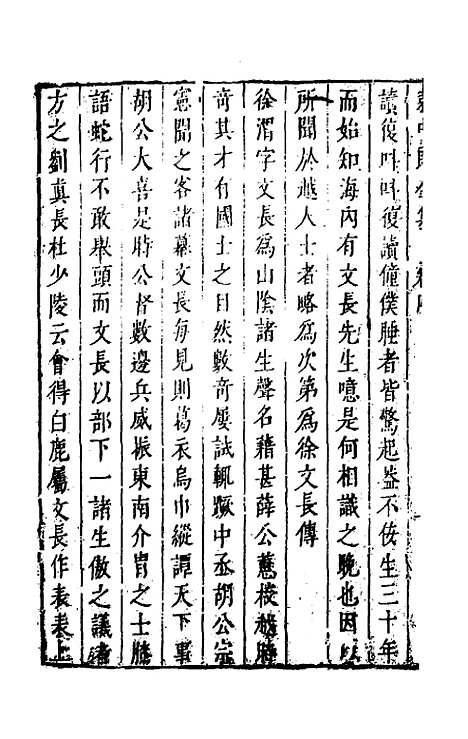 讀復呌呌復讀僮僕睡者皆驚起蓋不佞生三十年
而始知海內有文長先生噫是何相識之晚也因以
所聞於越人士者略為次第為徐文長傳
徐渭字文長為山陰諸生聲名藉甚薛公蕙校越時
竒其才有國士之目然數竒屢試輒蹶中丞胡公宗
憲聞之客諸幕文長每見則葛衣烏巾縱譚天下事
胡公大喜是時公督數邊兵威振東南介冑之士膝
語蛇行不敢舉頭而文長以部下一諸生傲之議者
方之劉真長杜少陵云會得白鹿屬文長作表表上